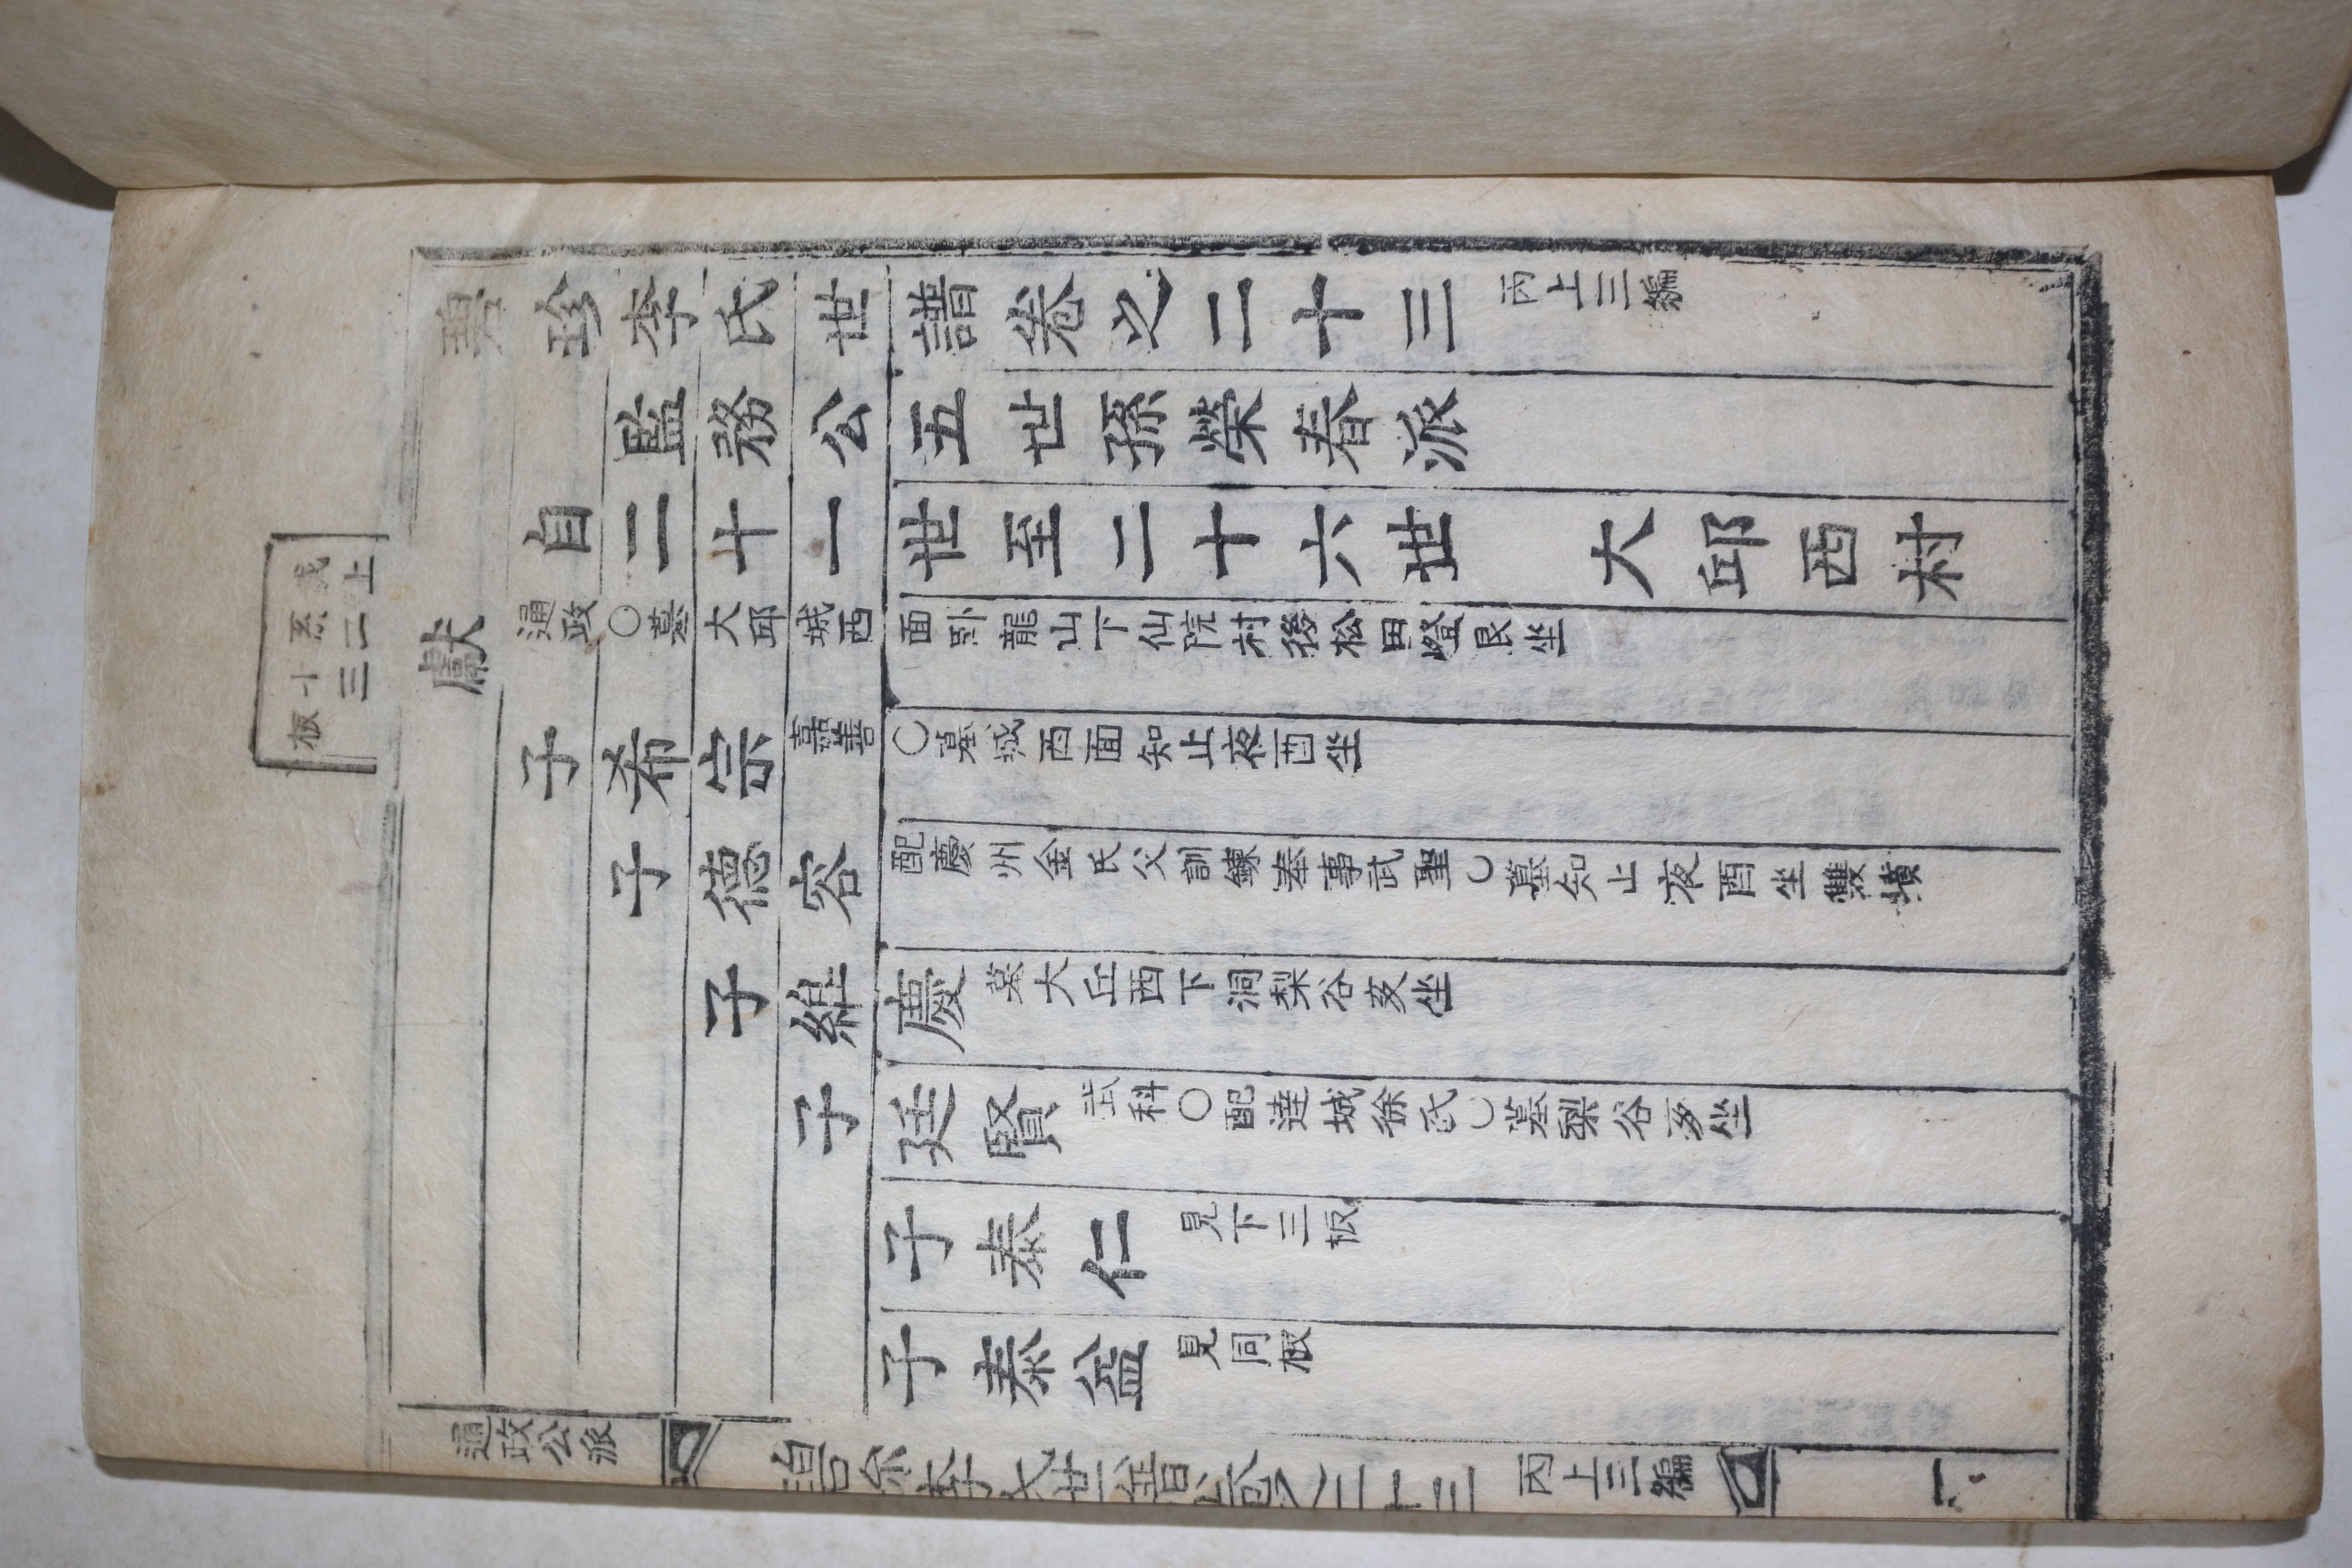 碧珍李氏世譜卷之二十三 丙上三編
監務公五世孫榮春派
自二十一世至二十六世 大邱西村
上系二十三板
獻 通政○墓大邱城西面臥龍山下仙院村後松田嶝艮坐
子希宗 嘉善○墓城西面知止夜酉坐
子德容 配慶州金氏父訓鍊奉事武聖○墓知止夜酉坐雙墳
子維慶 墓大丘西下洞梨谷亥坐
子廷賢 武科○配達城徐氏○墓梨谷亥坐
子泰仁 見下三板
子泰益 見同板
通政公派 碧珍李氏世譜卷之二十三 丙上三編 一